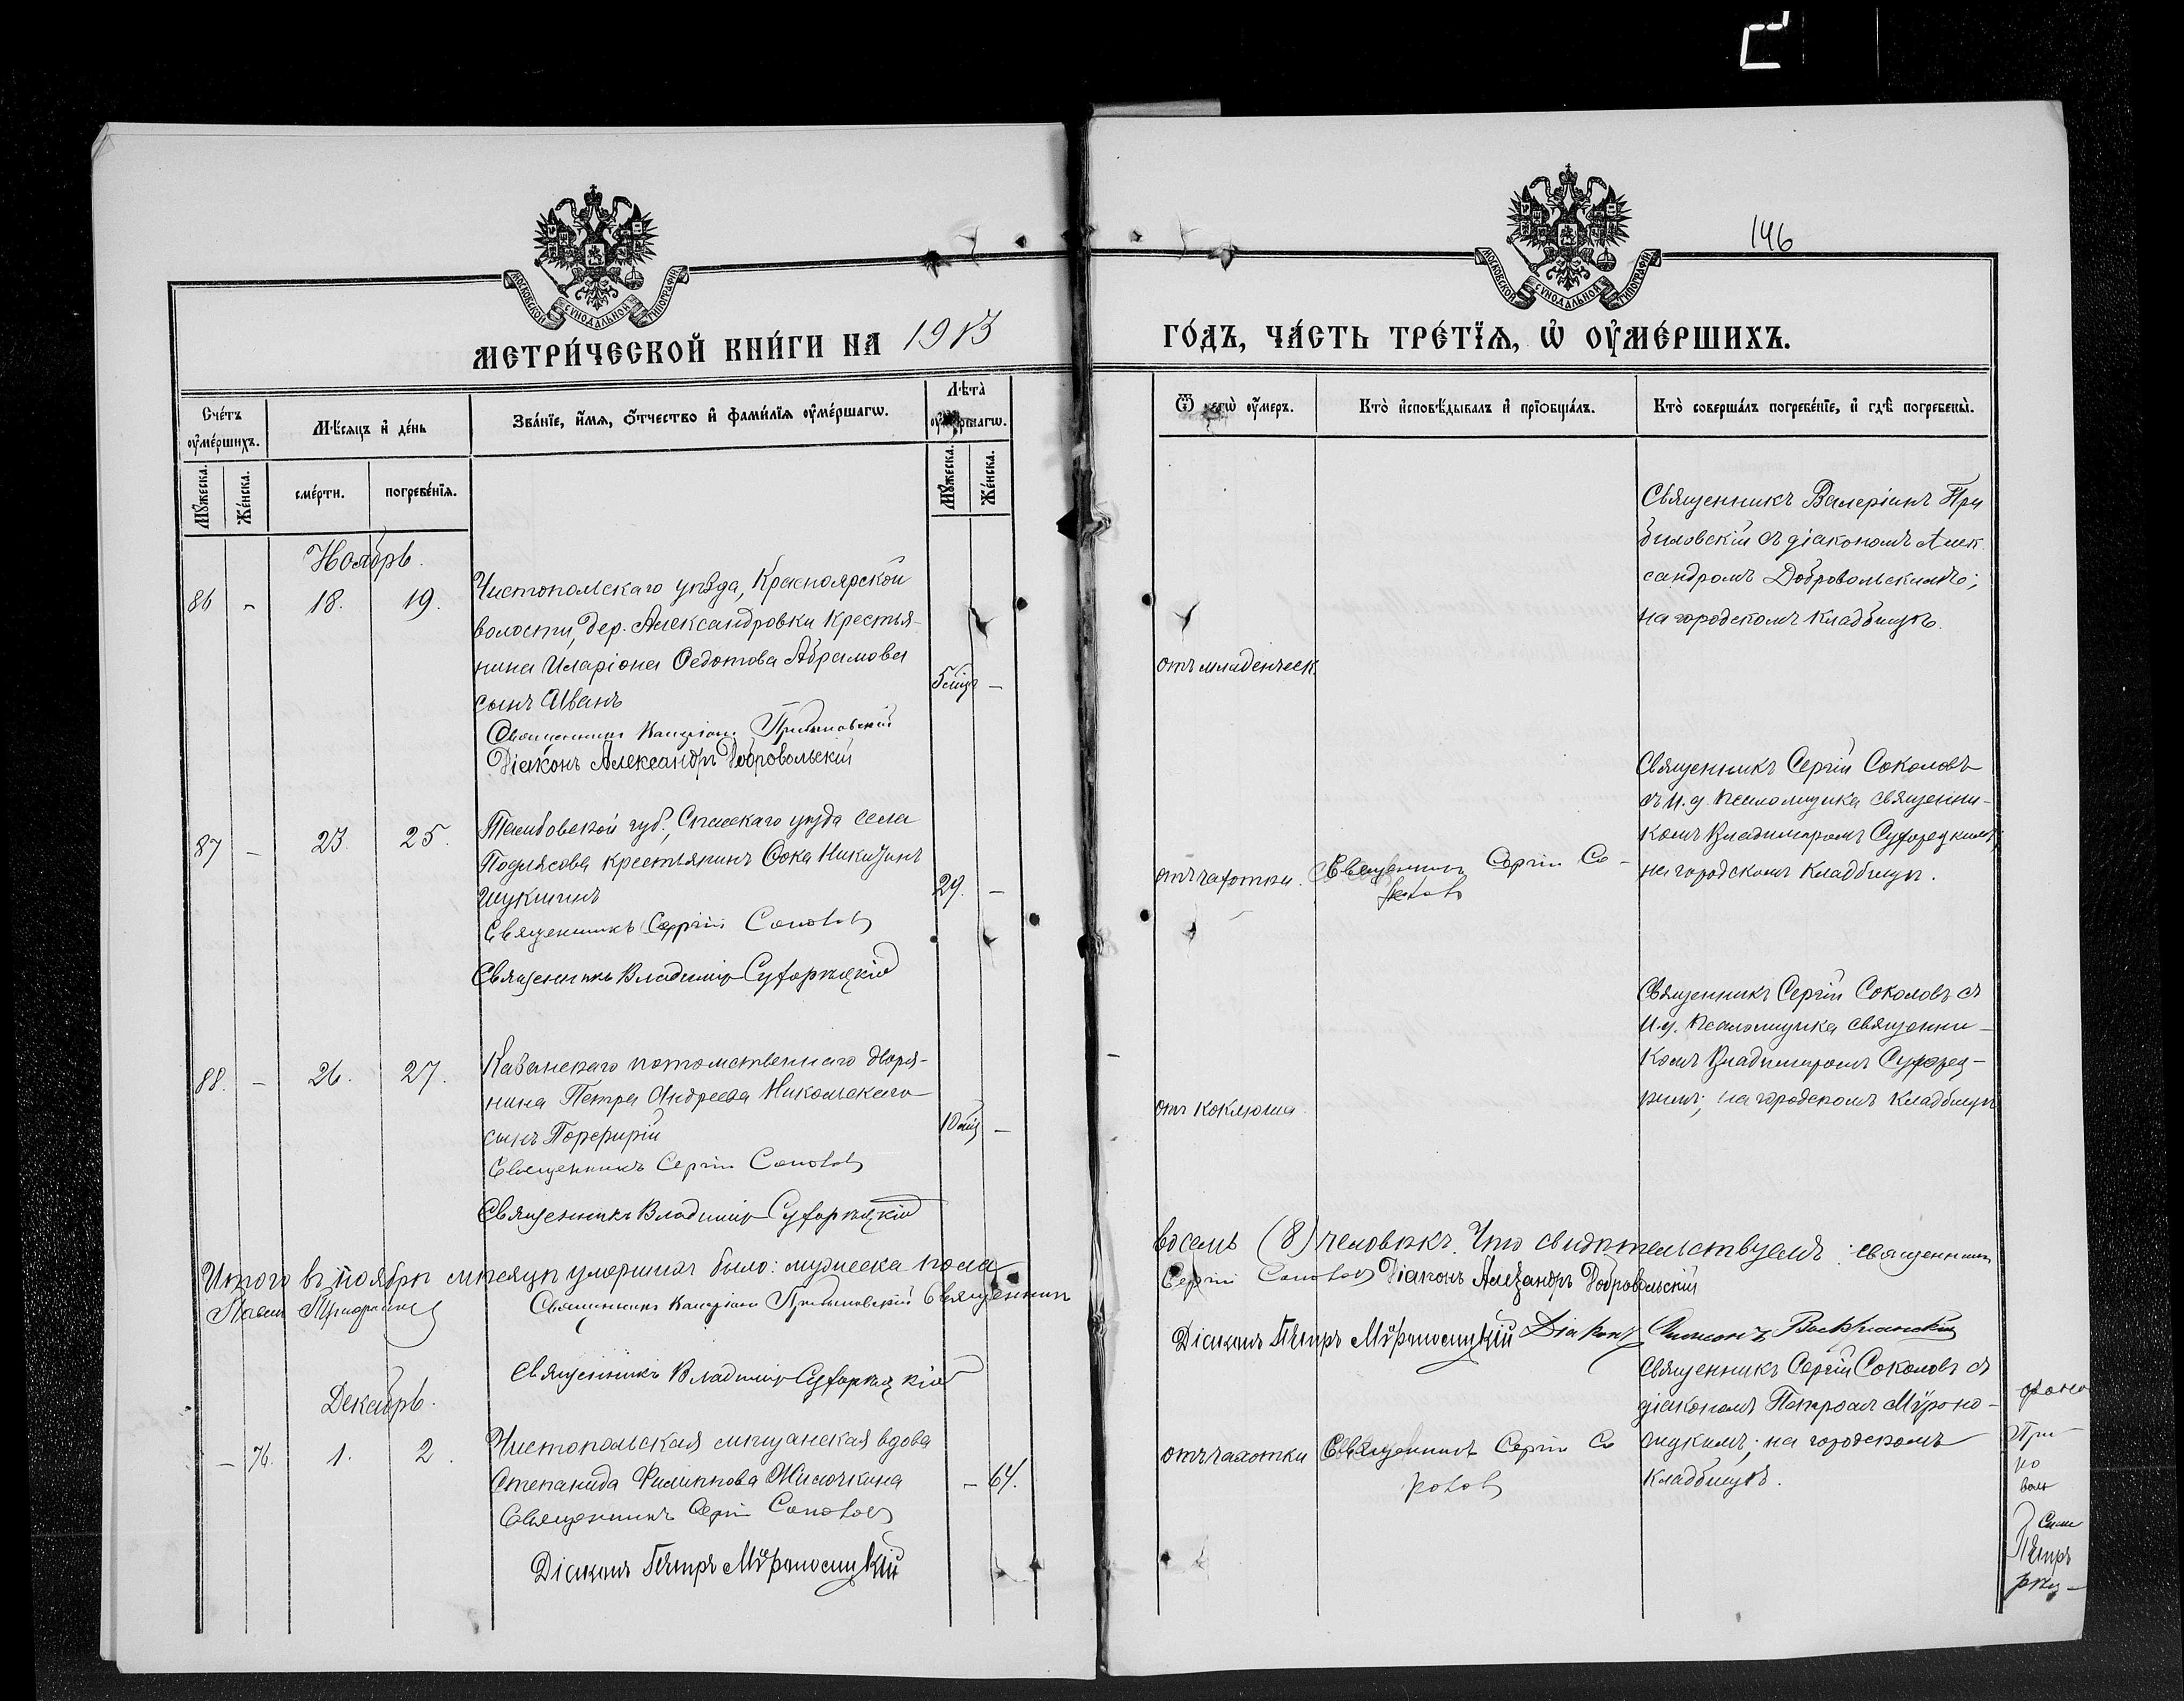 146
МОСКОВСКОЙ СѴНОДАЛЬНОЙ ТИПОГРАФІИ
МОСКОВСКОЙ СѴНОДАЛЬНОЙ ТИПОГРАФІИ
МЕТРИ́ЧЕСКОЙ КНИ́ГИ НА 1913
ГО́ДЪ, ЧА́СТЬ ТРЕ́ТЇѦ, Ѡ҆ ОУ҆МЕ́РШИХЪ.
Сче́тъ оу҆ме́ршихъ.
Мѣ́сяцъ и҆ де́нь
Зва́нїе, и҆́мѧ, ѻ҆́тчество и҆ фами́лїѧ оу҆ме́ршагѡ.
Лѣ́та̀ оу҆ме́ршагѡ.
Мꙋ́жеска.
Же́нска.
сме́рти.
погребе́нїѧ.
Мꙋ́жеска.
Же́нска.
Ѿ чегѡ̀ оу҆́меръ.
Кто̀ и҆сповѣ́дывалъ и҆ прїѡбща́лъ.
Кто̀ соверша́лъ погребе́нїе, и҆ гдѣ̀ погребены̀.
Ноябрь.
86 - 18. 19.
Чистопольскаго уѣзда, Красноярской
волости, дер. Александровки крестья-
нина Иларіона Федотова Абрамова
сынъ Иванъ
5 мѣц —
Священникъ Прибыловскій
Діаконъ Александръ Добровольскій
отъ младенческ.
Священникъ Валеріанъ При
быловскій съ діакономъ Алек
сандромъ Добровольскимъ;
на городскомъ кладбищѣ.
87 — 23. 25.
Тамбовской губ., Спасскаго уѣзда села
Подлясова крестьянинъ Фока Никитинъ
29. —
Священникъ Сергій Соколовъ
Священникъ Владимір
отъ чахотки.
Священникъ Сергій Со-
коловъ
Священникъ Сергій Соколовъ
съ и.д. псаломщика священни-
комъ Владиміромъ
на городскомъ кладбищѣ.
88. — 26. 27.
Казанскаго потомственнаго дворя-
нина Петра Андреева Никольскаго
сынъ Порфирій
10 мѣц —
Священникъ Сергій Соколовъ
Священникъ Владимір
отъ коклюша.
Священникъ Сергій Соколовъ съ
и.д. псаломщика священни-
комъ Владиміромъ
на городскомъ кладбищѣ
Итого въ ноябрѣ мѣсяцѣ умершихъ было: мужеска пола
восемь (8) человѣкъ. Что свидѣтельствуемъ: священникъ
Сергій Соколовъ Діаконъ Александръ Добровольскій
Священникъ Прибыловскій Священникъ
Діаконъ Петръ Мѵроносицкій Діаконъ
Священникъ Владимір
Декабрь.
— 76. 1. 2.
Чистопольская мѣщанская вдова
Степанида Филиппова
— 64.
Священникъ Сергій Соколовъ
Діаконъ Петръ Мѵроносицкій
отъ чахотки
Священникъ Сергій Со
коловъ
Священникъ Сергій Соколовъ съ
діакономъ Петромъ Мѵроно-
сицкимъ; на городскомъ
кладбищѣ.
Петръ